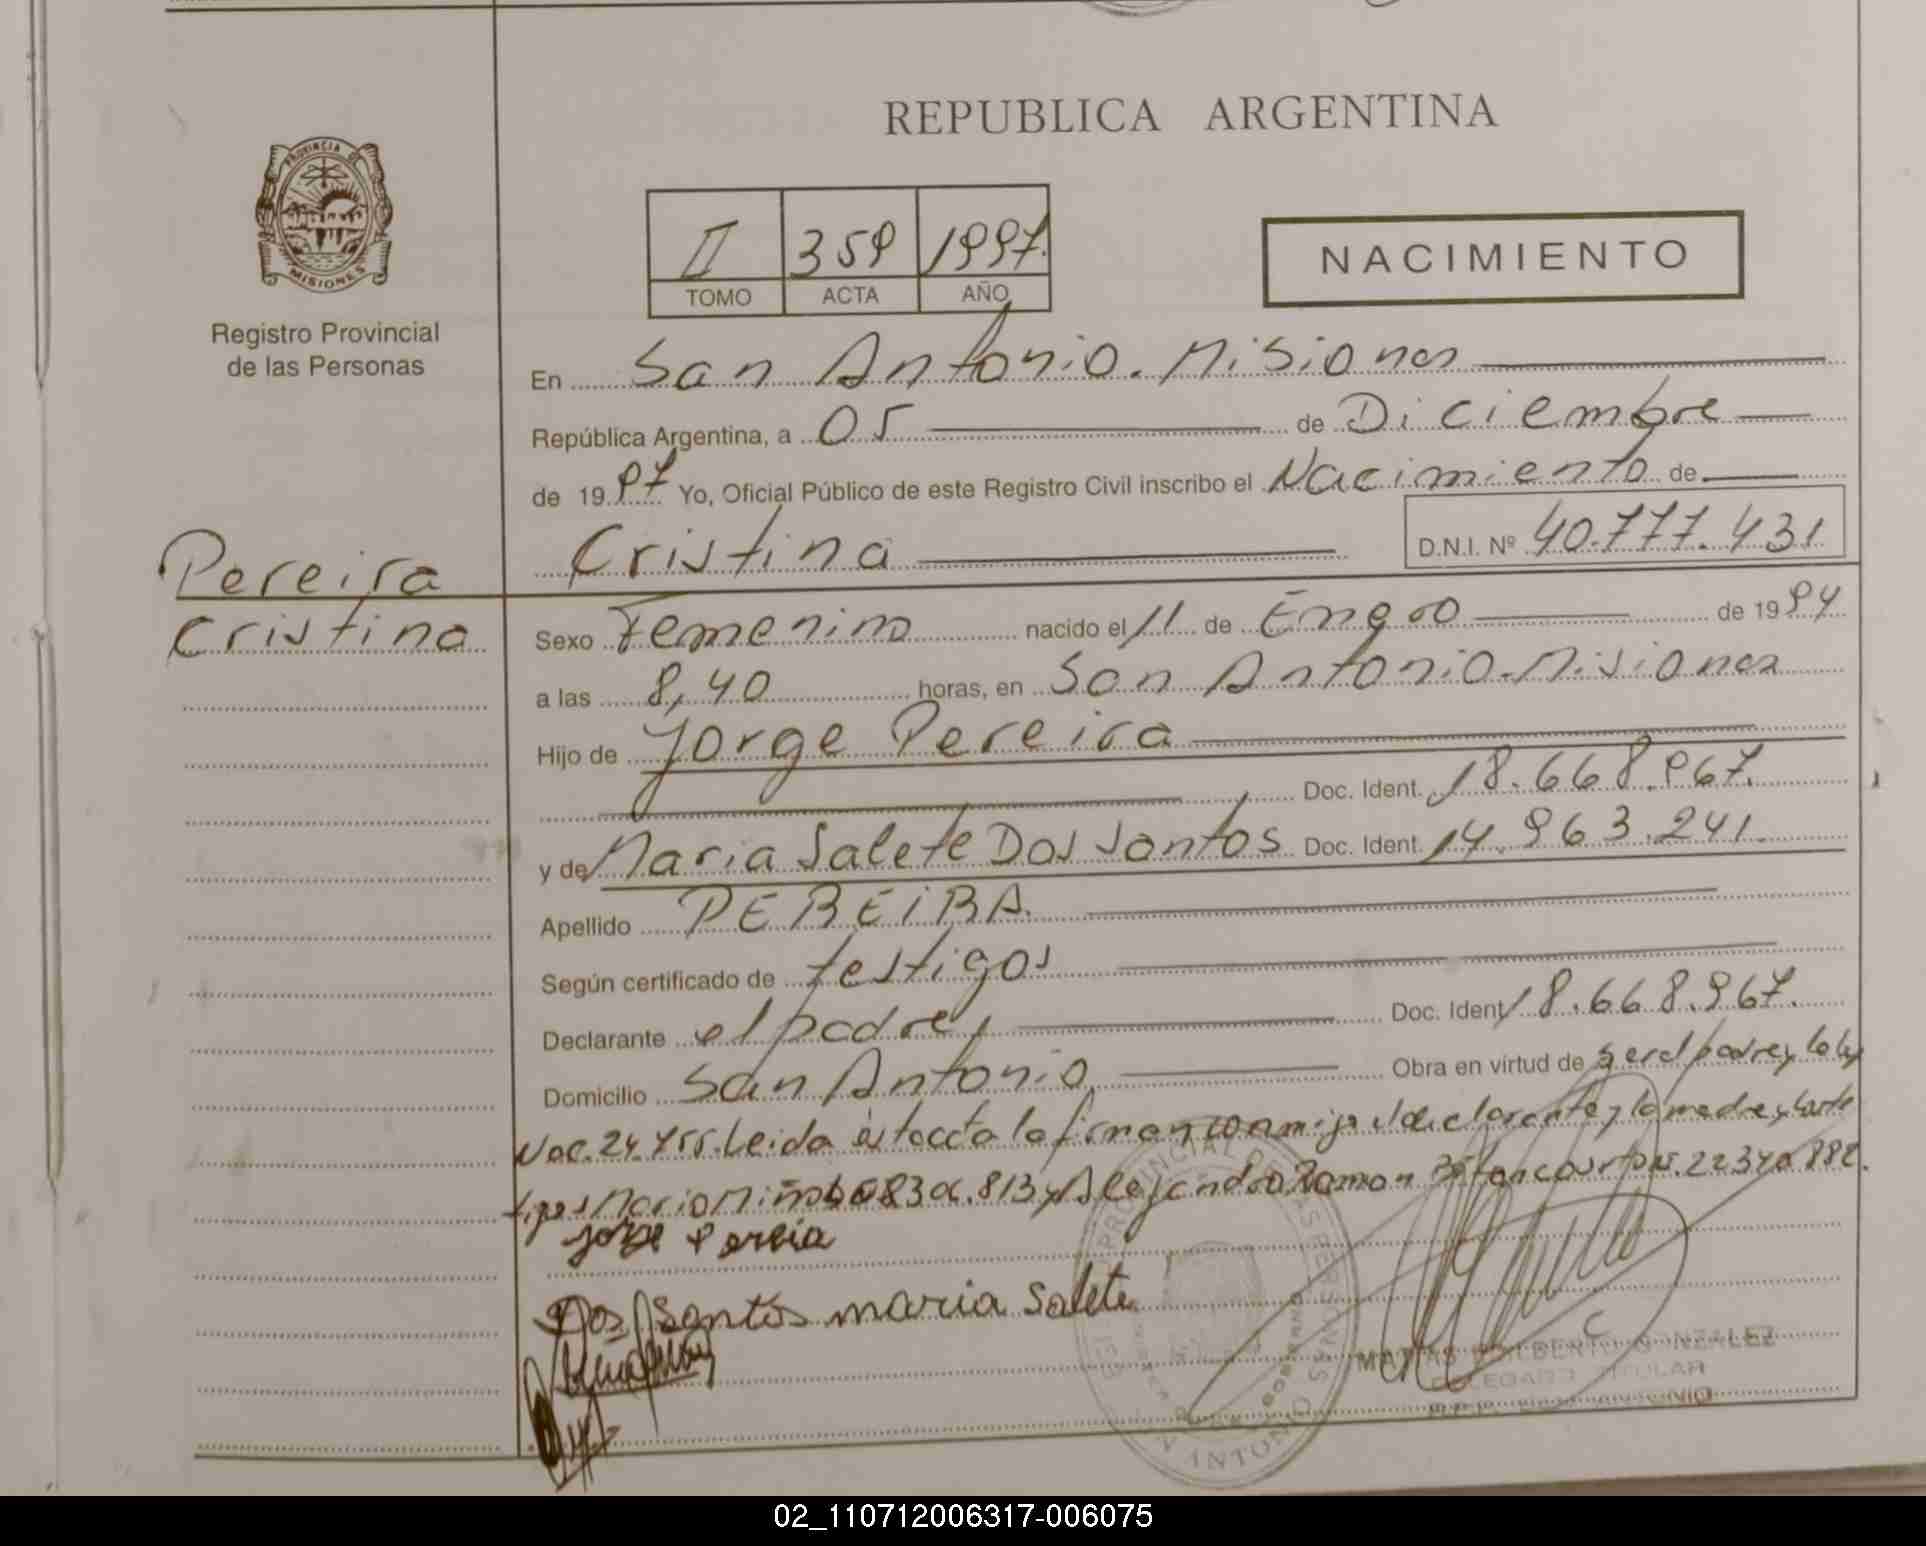 REPUBLICA ARGENTINA
PROVINCIA DE
MISIONES
Registro Provincial
de las Personas
II 359 1997.
TOMO ACTA AÑO
NACIMIENTO
En San Antonio. Misiones
República Argentina, a 05 de Diciembre
de 1997 Yo, Oficial Público de este Registro Civil inscribo el Nacimiento de
Cristina D.N.I. Nº 40.777.431
Pereira
Cristina
Sexo Femenino nacido el 11 de Enero de 1994
a las 8,40 horas, en San Antonio. Misiones
Hijo de Jorge Pereira
Doc. Ident. 18.668.967.
y de Maria Salete Dos Santos Doc. Ident. 14.963.241.
Apellido PEREIRA.
Según certificado de testigos
Declarante el padre, Doc. Ident 18.668.967.
Domicilio San Antonio Obra en virtud de ser el padre y la ley
Nac. 24. Leida esta acta la firman conmigo el declarante y la madre y los tes
tigos Mario y Alejandro Ramon 22.340.882.
Jorge Pereia
Dos Santos maria Salete
PROVINCIAL DE LAS PERSONAS
SAN ANTONIO
MATIAS GONZALEZ
DELEGADO TITULAR
R.P.P. SAN ANTONIO
02_110712006317-006075